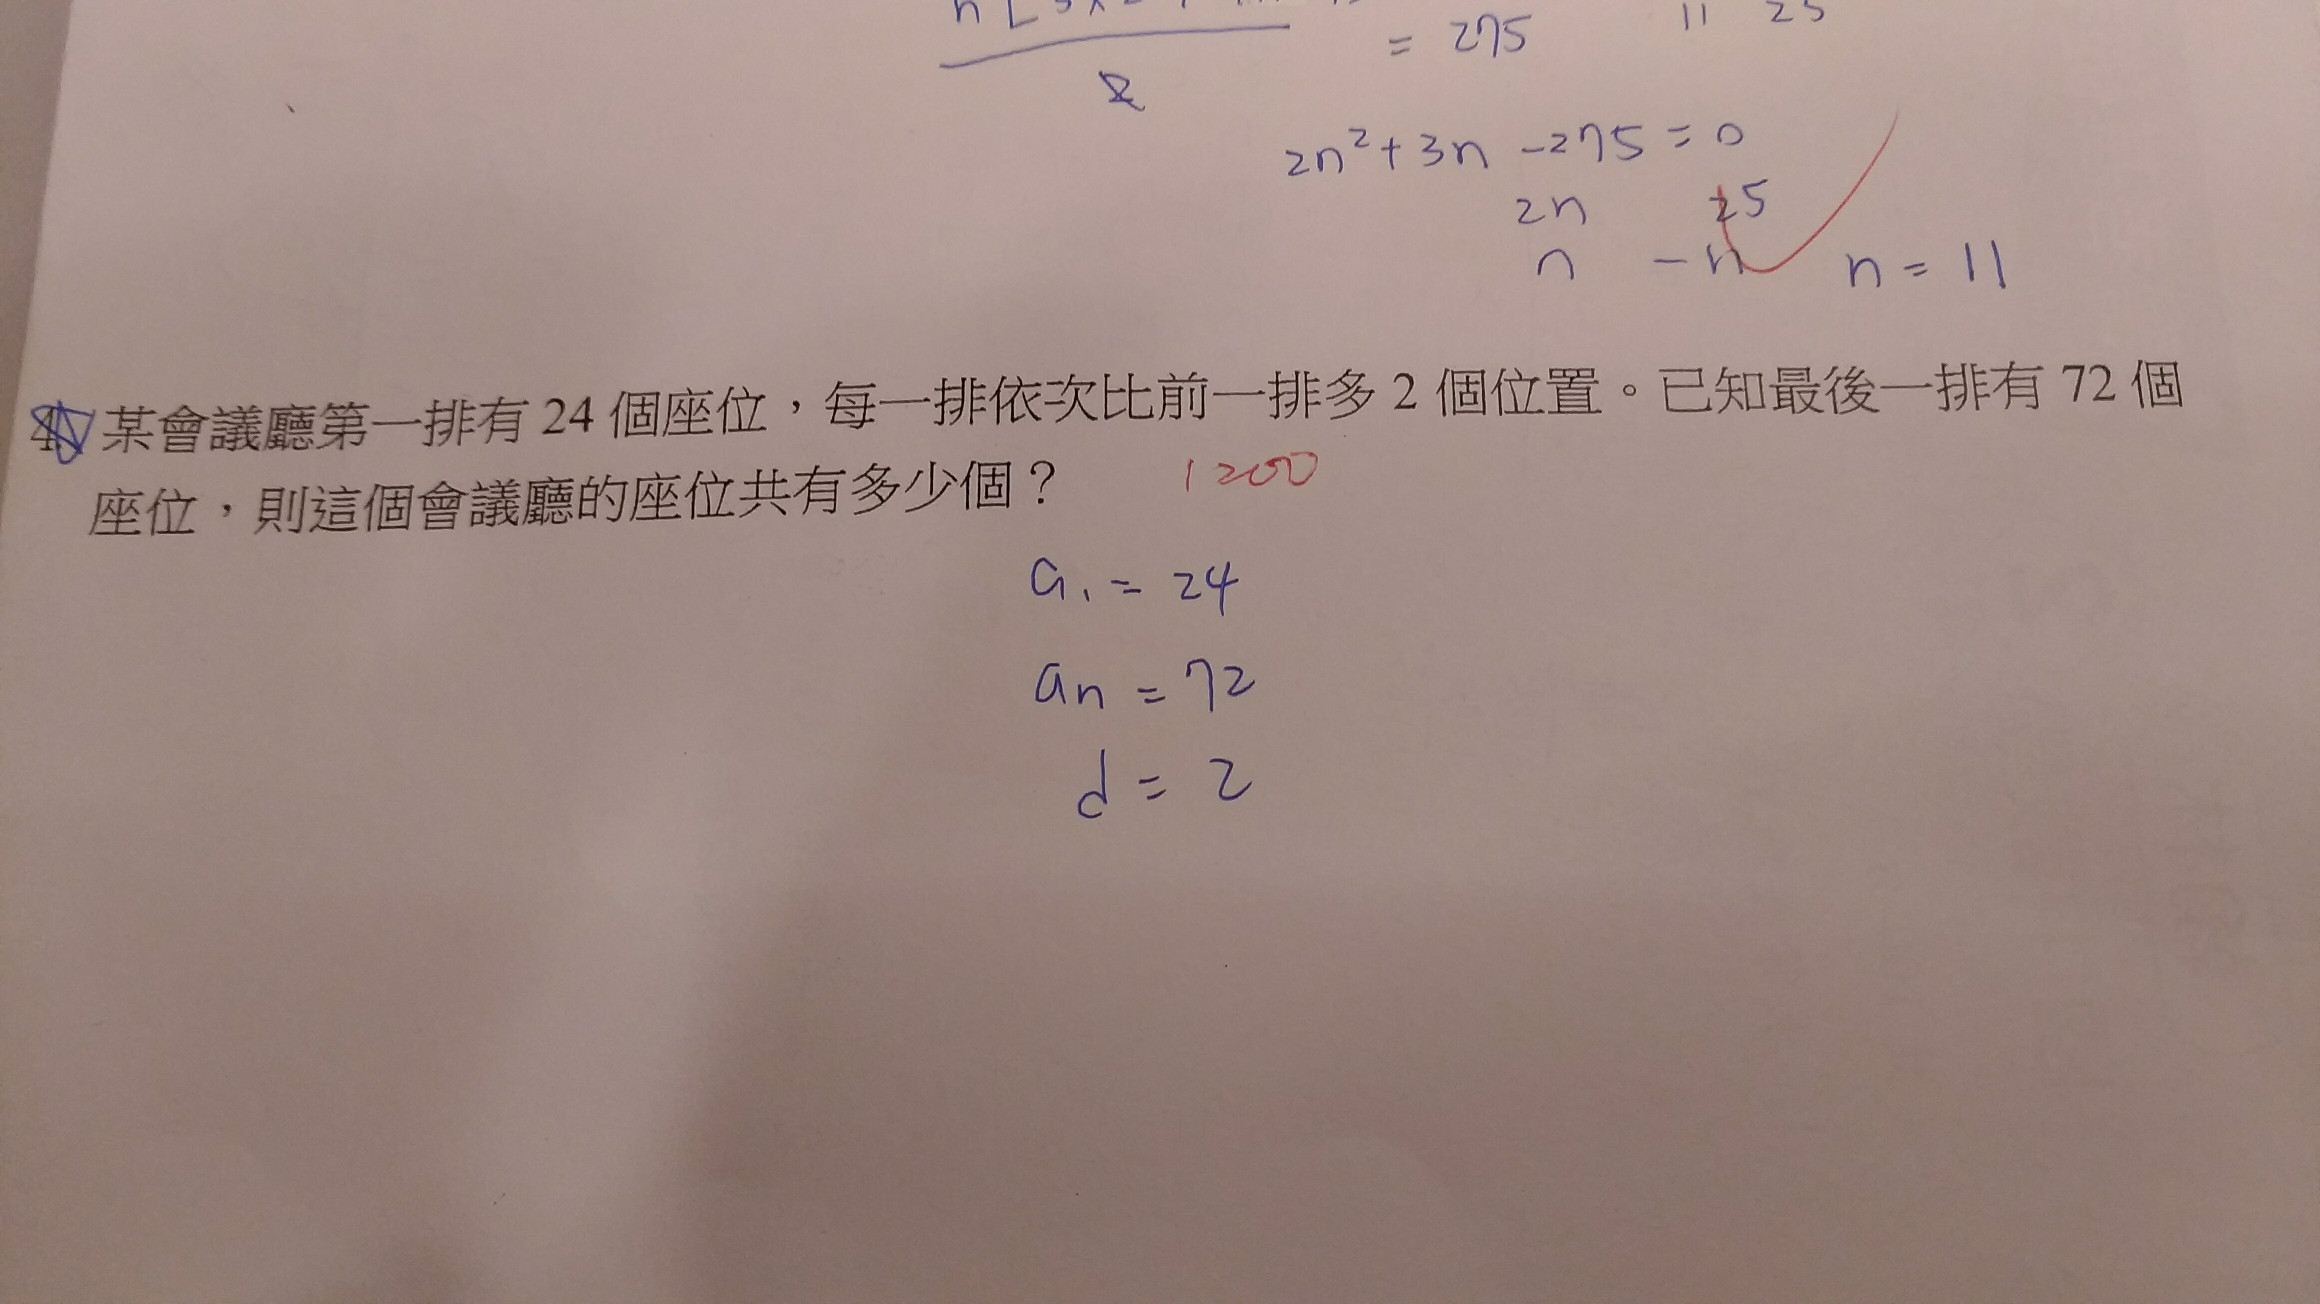 = 275
11 25
2
2n²+3n -275=0
2n 25
n -11 n = 11
某會議廳第一排有 24 個座位，每一排依次比前一排多 2 個位置。已知最後一排有 72 個
座位，則這個會議廳的座位共有多少個？ 1200
a₁ = 24
an = 72
d = 2